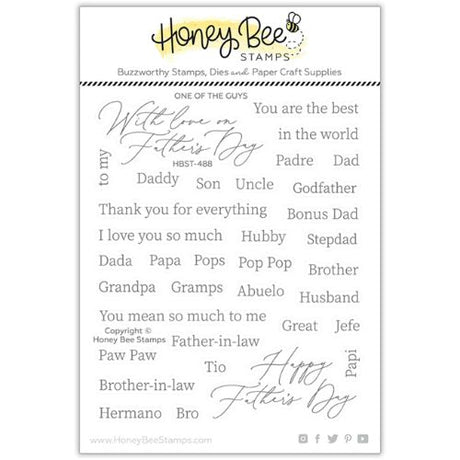 Honey Bee
STAMPS
Buzzworthy Stamps, Dies and Paper Craft Supplies
ONE OF THE GUYS
With love on
Father's Day
HBST-488
to my
You are the best
in the world
Padre Dad
Daddy Son Uncle Godfather
Thank you for everything Bonus Dad
I love you so much Hubby Stepdad
Dada Papa Pops Pop Pop Brother
Grandpa Gramps Abuelo Husband
You mean so much to me Great Jefe
Copyright ©
Honey Bee Stamps
Father-in-law
Paw Paw Tio Papi
Happy
Father's Day
Brother-in-law
Hermano Bro
www.HoneyBeeStamps.com